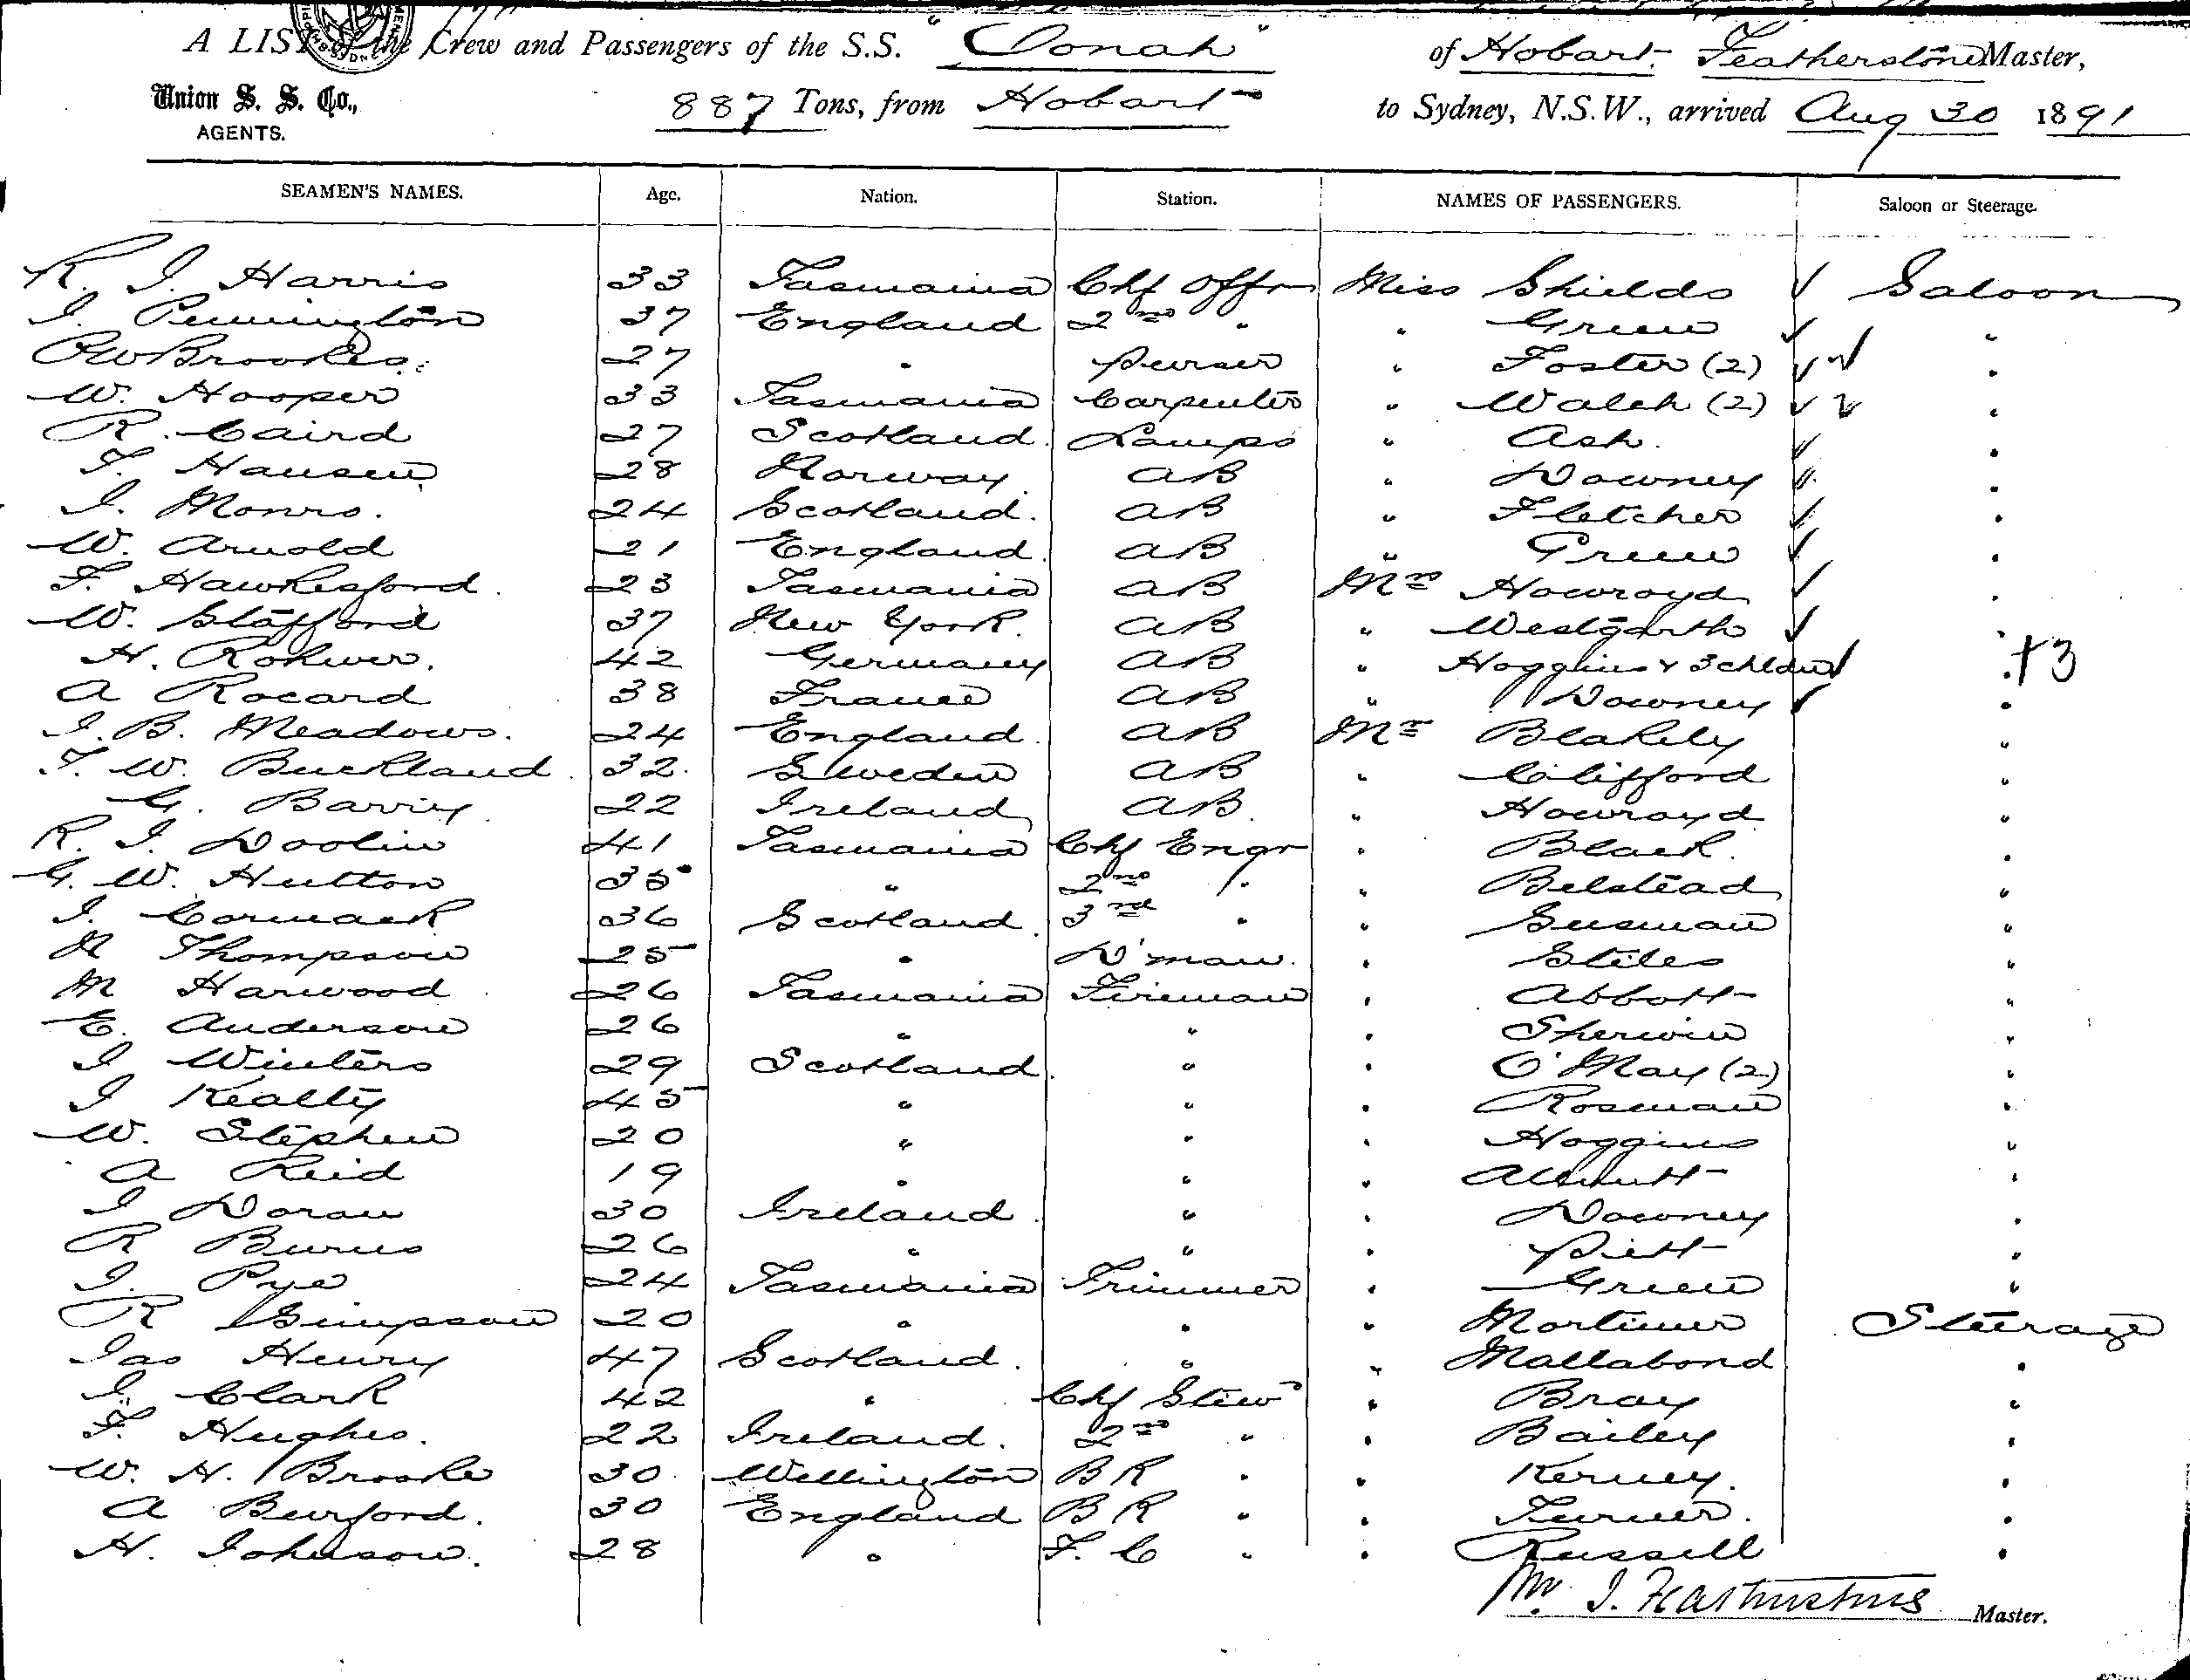 A LIST of the Crew and Passengers of the S.S. "Oonah" of Hobart. Featherstone Master,
Union S. S. Co., 887 Tons, from Hobart to Sydney, N.S.W., arrived Aug 30 1891
AGENTS.
SEAMEN'S NAMES. Age. Nation. Station. NAMES OF PASSENGERS. Saloon or Steerage.
R. J. Harris 33 Tasmania Chf Offr Miss Shields ✓ Saloon
J. Pennington 37 England 2nd " " Green ✓ "
P W Brookes 27 " Purser " Foster (2) ✓✓ "
W. Hooper 33 Tasmania Carpenter " Walch (2) ✓✓ "
R. Caird 27 Scotland Lamps " Ash. ✓ "
T. Hansen 28 Norway AB " Downey ✓ "
J. Monro. 24 Scotland. AB " Fletcher ✓ "
W. Arnold 21 England. AB " Green ✓ "
F. Hawkesford. 23 Tasmania AB Mrs Howroyd ✓ "
W. Stafford 37 New York. AB " Westgarth ✓ "
H. Rohwer. 42 Germany AB " Hoggins & 3 childn ✓ " +3
A Rocard 38 France AB " Downey ✓ "
J. B. Meadows. 24 England. AB Mr Blakely "
T. W. Buckland. 32. Sweden AB " Clifford "
G. Barry 22 Ireland AB. " Howroyd "
R. J. Doolin 41 Tasmania Chf Engr " Black. "
G. W. Hutton 35 " 2nd " " Belstead "
J. Cormack 36 Scotland. 3rd " " Susman "
N Thompson 25 " D'man. " Stiles "
M Harwood 26 Tasmania Fireman " Abbott "
E. Anderson 26 " " " Sherwin "
J Winters 29 Scotland. " " O'May (2) "
J Kealty 45 " " " Rosman "
W. Stephen 20 " " " Hoggins "
A Reid 19 " " " "
J Doran 30 Ireland " " Downey "
R Burns 26 " " " Pitt "
J. Pye 24 Tasmania Trimmer " Green "
R Simpson 20 " " " Mortimer Steerage
Jas Henry 47 Scotland. " " Mallabond "
J. Clark 42 " Chf Stewd " Bray "
F. Hughes. 22 Ireland. 2nd " " Bailey "
W. H. Brooke 30. Wellington BR " " Kerney. "
A Burford. 30 England BR " " Turner. "
H. Johnson. 28 " F. C " " Russell "
W. J. Featherstone Master.